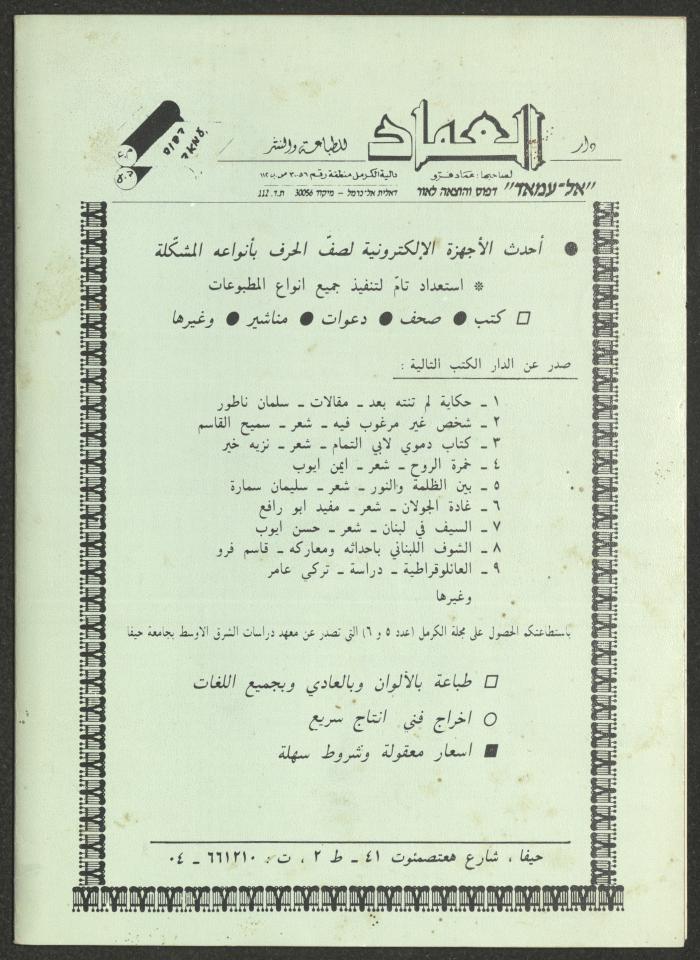 دار العماد للطباعة والنشر
דפוס
עמאד
ع.ف
ע.פ
لصاحبها : عماد فرو
دالية الكرمل منطقة رقم ٣٠٠٥٦ ص.ب ١١٢
"אל-עמאד" דפוס והוצאה לאור
דאלית אל-כרמל – מיקוד 30056 ת.ד. 112
● أحدث الأجهزة الإلكترونية لصفّ الحرف بأنواعه المشكّلة
* استعداد تامّ لتنفيذ جميع انواع المطبوعات
□ كتب ● صحف ● دعوات ● مناشير ● وغيرها
صدر عن الدار الكتب التالية :
١ ـ حكاية لم تنته بعد ـ مقالات ـ سلمان ناطور
٢ ـ شخص غير مرغوب فيه ـ شعر ـ سميح القاسم
٣ ـ كتاب دموي لابي التمام ـ شعر ـ نزيه خير
٤ ـ خمرة الروح ـ شعر ـ ايمن ايوب
٥ ـ بين الظلمة والنور ـ شعر ـ سليمان سمارة
٦ ـ غادة الجولان ـ شعر ـ مفيد ابو رافع
٧ ـ السيف في لبنان ـ شعر ـ حسن ايوب
٨ ـ الشوف اللبناني باحداثه ومعاركه ـ قاسم فرو
٩ ـ العائلوقراطية ـ دراسة ـ تركي عامر
وغيرها
باستطاعتكم الحصول على مجلة الكرمل (عدد ٥ و ٦) التي تصدر عن معهد دراسات الشرق الاوسط بجامعة حيفا
□ طباعة بالألوان وبالعادي وبجميع اللغات
○ اخراج فني انتاج سريع
■ اسعار معقولة وشروط سهلة
حيفا ، شارع هعتصمئوت ٤١ ـ ط ٢ ، ت : ٦٦١٢١٠ ـ ٠٤